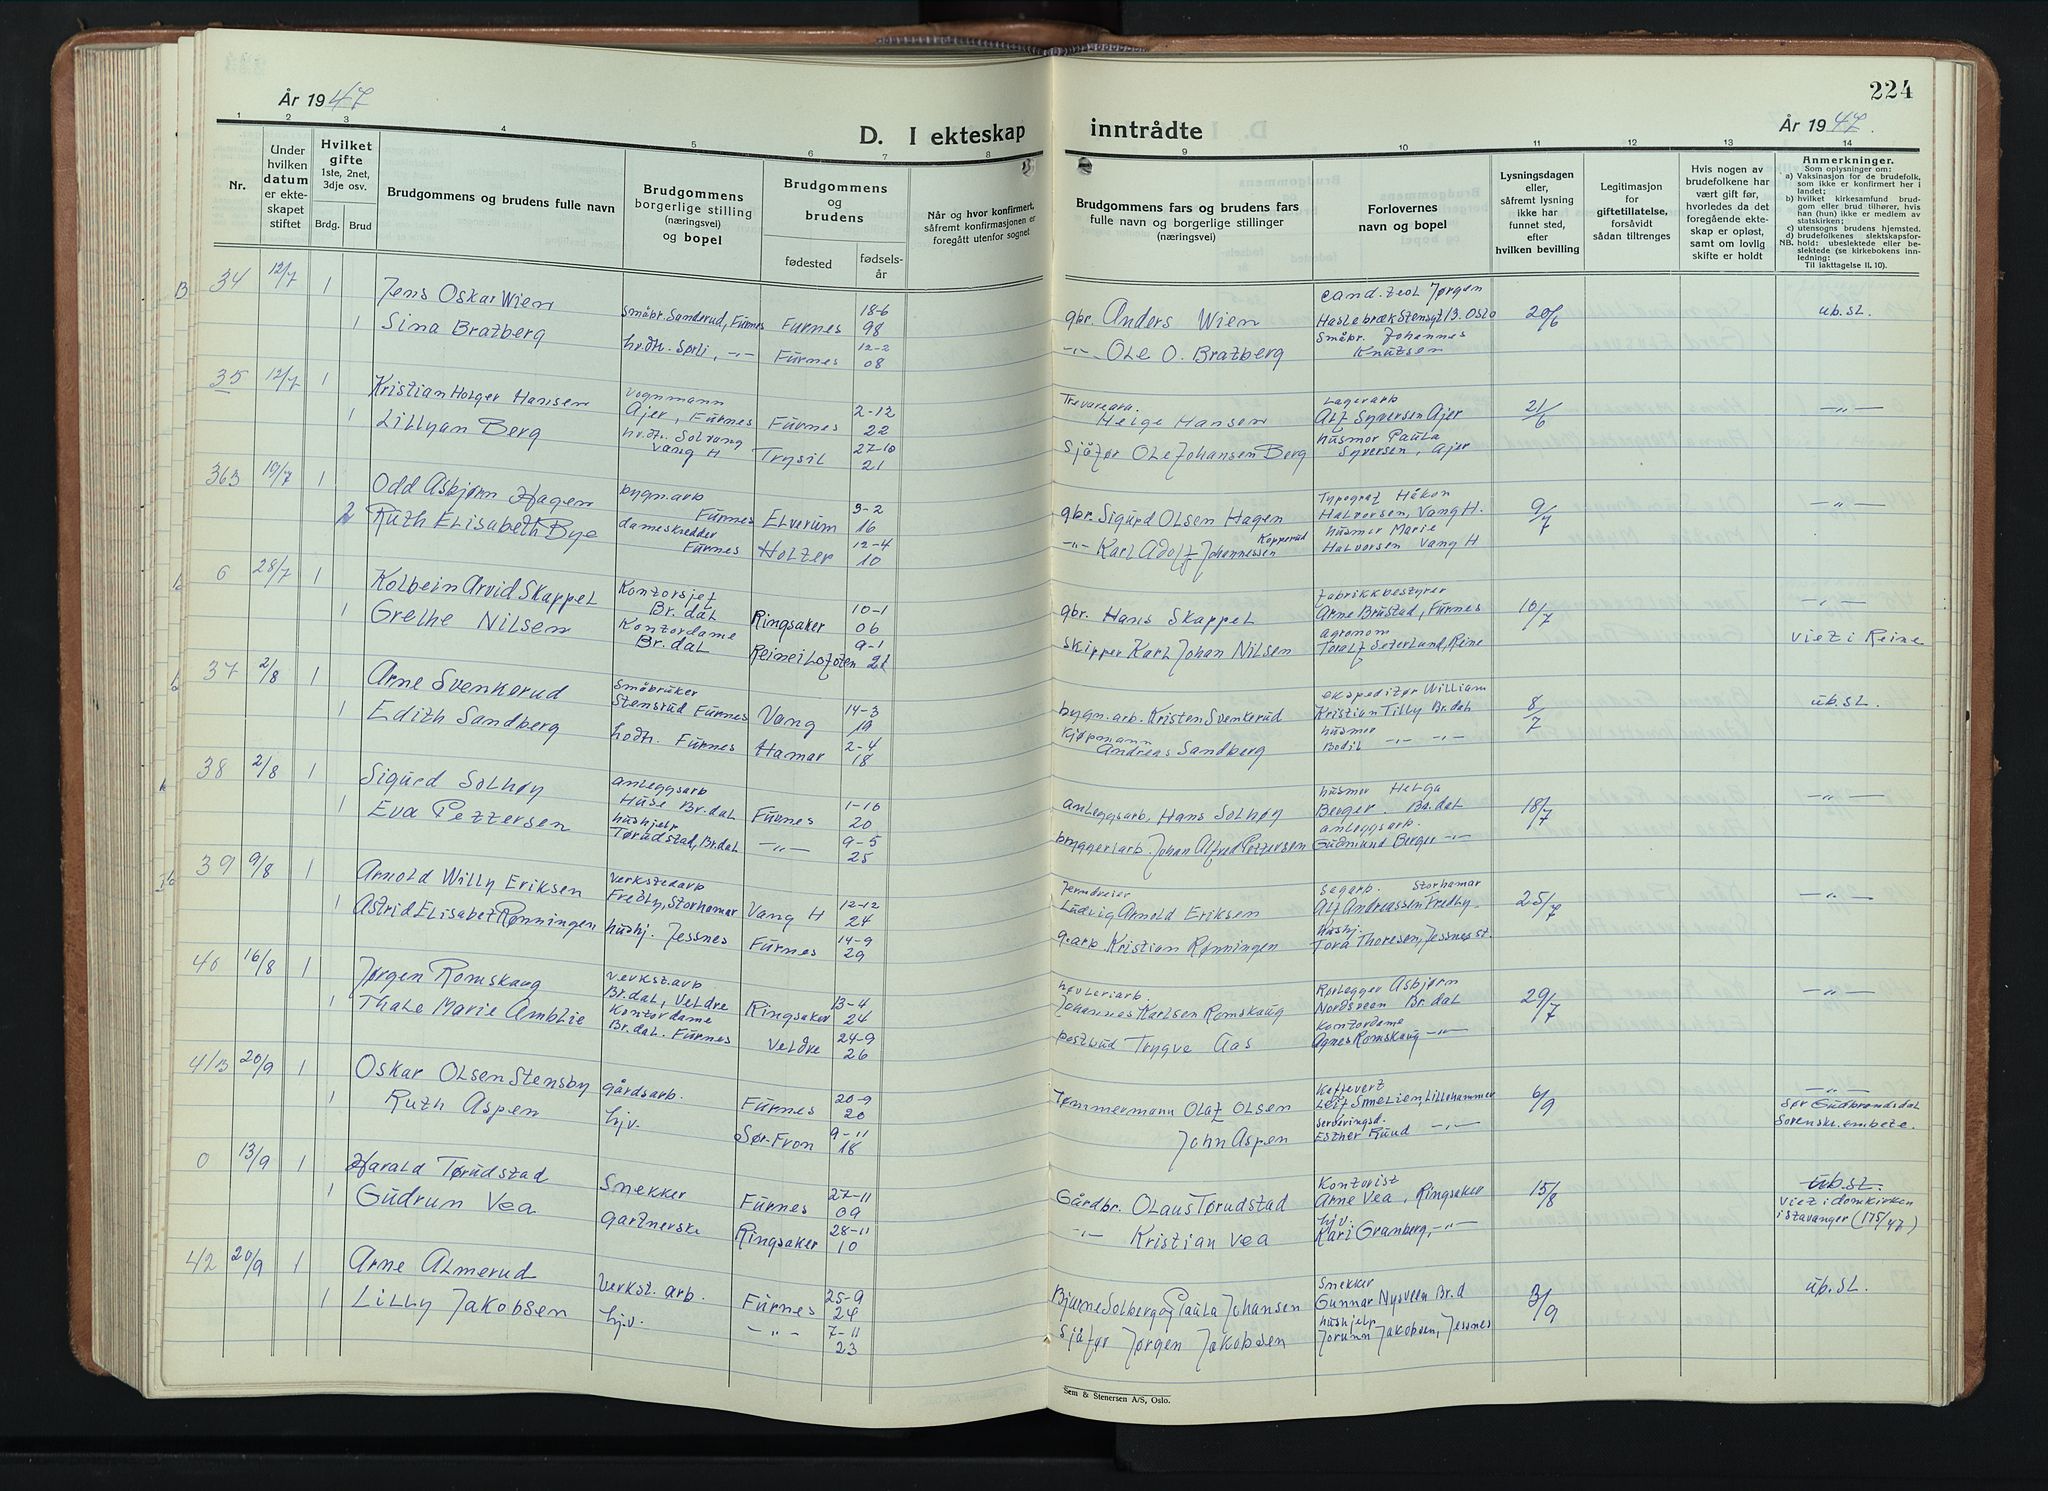 År 1947
D. I ekteskap inntrådte
År 1947
224
1 2 3 4 5 6 7 8 9 10 11 12 13 14
Nr.
Under hvilken datum er ekteskapet stiftet
Hvilket gifte 1ste, 2net, 3dje osv.
Brdg.
Brud
Brudgommens og brudens fulle navn
Brudgommens borgerlige stilling (næringsvei) og bopel
Brudgommens og brudens
fødested
fødsels-år
Når og hvor konfirmert, såfremt konfirmasjonen er foregått utenfor sognet
Brudgommens fars og brudens fars fulle navn og borgerlige stillinger (næringsvei)
Forlovernes navn og bopel
Lysningsdagen eller, såfremt lysning ikke har funnet sted, efter hvilken bevilling
Legitimasjon for giftetillatelse, forsåvidt sådan tiltrenges
Hvis nogen av brudefolkene har vært gift før, hvorledes da det foregående ekteskap er opløst, samt om lovlig skifte er holdt
Anmerkninger.
Som oplysninger om:
a) Vaksinasjon for de brudefolk, som ikke er konfirmert her i landet;
b) hvilket kirkesamfund brudgom eller brud tilhører, hvis han (hun) ikke er medlem av statskirken;
c) utensogns brudens hjemsted.
d) brudefolkenes slektskapsforhold: ubeslektede eller beslektede (se kirkebokens innledning:
NB. Til iakttagelse II. 10).
B 34 12/7 1 Jens Oskar Wien Småbr. Sanderud, Furnes Furnes 18-6 98 gbr. Anders Wien cand. zeol Jørgen Haslebræk Stensgt 13. Oslo 20/6 ub.sl.
1 Sina Brazberg hvdtr. Sørli, -"- Furnes 12-2 08 -"- Ole O. Brazberg Småbr. Johannes Knutsen
35 12/7 1 Kristian Holger Hansen vognmann Ajer, Furnes Furnes 2-12 22 Trevarearb. Helge Hansen Lagerarb Alf Syversen Ajer 21/6 -"-
1 Lillyan Berg hv.dtr. Solvang Vang H Trysil 27-10 21 Sjåfør Ole Johansen Berg husmor Paula Syversen, Ajer
36 B 10/7 1 Odd Asbjørn Hagen bygn.arb Furnes Elverum 3-2 16 gbr. Sigurd Olsen Hagen Typograf Håkon Halvorsen, Vang H. 9/7 -"-
2 Ruth Elisabeth Bye dameskredder Furnes Holter 12-4 10 -"- Karl Adolf Johannessen Kopperud husmor Marie Halvorsen Vang H
b 0 28/7 1 Kolbein Arvid Skappel Kontorsjef Br.dal Ringsaker 10-1 06 gbr. Hans Skappel Fabrikkbestyrer Arne Brustad, Furnes 10/7 -"-
1 Grethe Nilsen Kontordame Br.dal Reine i Lofoten 9-1 21 Skipper Karl Johan Nilsen agronom Toralf Seterlund, Reine Viet i Reine
b 37 2/8 1 Arne Svenkerud Småbruker Stensrud Furnes Vang 14-3 bygn.arb. Kristen Svenkerud ekspeditør William Kristian Tilly Br.dal 8/7 ub.sl.
1 Edith Sandberg hvdtr. Furnes Hamar 2-4 18 Kjøpmann Andreas Sandberg husmor Bodil -"- -"-
38 2/8 1 Sigurd Solhøy anleggsarb Huse Br.dal Furnes 1-10 20 anleggsarb. Hans Solhøy husmor Helga Berger Br.dal 18/7 -"-
1 Eva Pettersen hushjelp Tørudstad, Br.dal -"- 9-5 25 bryggeriarb. Johan Alfred Pettersen anleggsarb. Gudmund Berger -"-
39 9/8 1 Arnold Willy Eriksen verkstedarb Fredly, Storhamar Vang H 12-12 24 Jerndreier Ludvig Arnold Eriksen Sagarb. Storhamar Alf Andreassen Fredly. 25/7 -"-
1 Astrid Elisabet Rønningen hushj. Jessnes Furnes 14-9 29 g.arb Kristian Rønningen hushj. Tora Thoresen, Jessnes st.
40 16/8 1 Jørgen Romskaug verkst.arb Br.dal, Veldre Ringsaker 13-4 24 høvleriarb. Johannes Karlsen Romskaug Rørlegger Asbjørn Nordsveen Br.dal 29/7 -"-
1 Thale Marie Amblie Kontordame Br.dal. Furnes Veldre 24-9 26 postbud Trygve Aas Kontordame Agnes Romskaug -"-
41 B 20/9 1 Oskar Olsen Stensby gårdsarb. Furnes 20-9 20 Tømmermann Olaf Olsen Keltevert Leif Smelien, Lillehammer 6/9 -"-
1 Ruth Aspen hj.v. Sør-Fron 9-11 18 John Aspen serveringsd. Esther Ruud -"- Sør Gudbrandsdal Sorenskr.embete.
0 13/9 1 Harald Tørudstad Snekker Furnes 27-11 09 Gårdbr. Olaus Tørudstad Kontorist Arne Vea, Ringsaker 15/8 ub.sl.
1 Gudrun Vea Gartnerske Ringsaker 28-11 10 -"- Kristian Vea hj.v. Kari Granberg, -"- Viet i domkirken i Stavanger (175/47)
42 20/9 1 Arne Almerud Verkst. arb. Furnes 25-9 24 Bjarne Solberg og Paula Johansen Snekker Gunnar Nysveen Br.d 3/9 ub.sl.
1 Lilly Jakobsen hj.v. -"- 7-11 23 Sjåfør Jørgen Jakobsen hushjelp Jorunn Jakobsen, Jessnes
Sem & Stenersen A/S, Oslo.